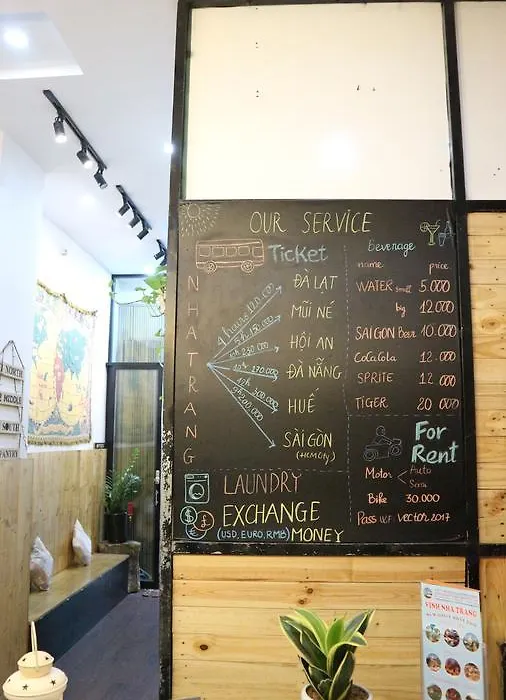 OUR SERVICE
Ticket
NHATRANG
4 hours 120.000
ĐÀ LẠT
5h 150.000
MŨI NÉ
220.000
HỘI AN
10h 270.000
ĐÀ NẴNG
12h 300.000
HUẾ
9h 200.000
SÀI GÒN
(HCM City)
LAUNDRY
EXCHANGE
(USD, EURO, RMB) MONEY
Beverage
name price
WATER small 5.000
big 12000
SAIGON Beer 10.000
CoCaCola 12.000
SPRITE 12.000
TIGER 20 000
For
Rent
Motor Auto
Semi
Bike 30.000
Pass W.F. vector2017
NORTH
MIDDLE
SOUTH
PANTRY
VINH NHA TRANG